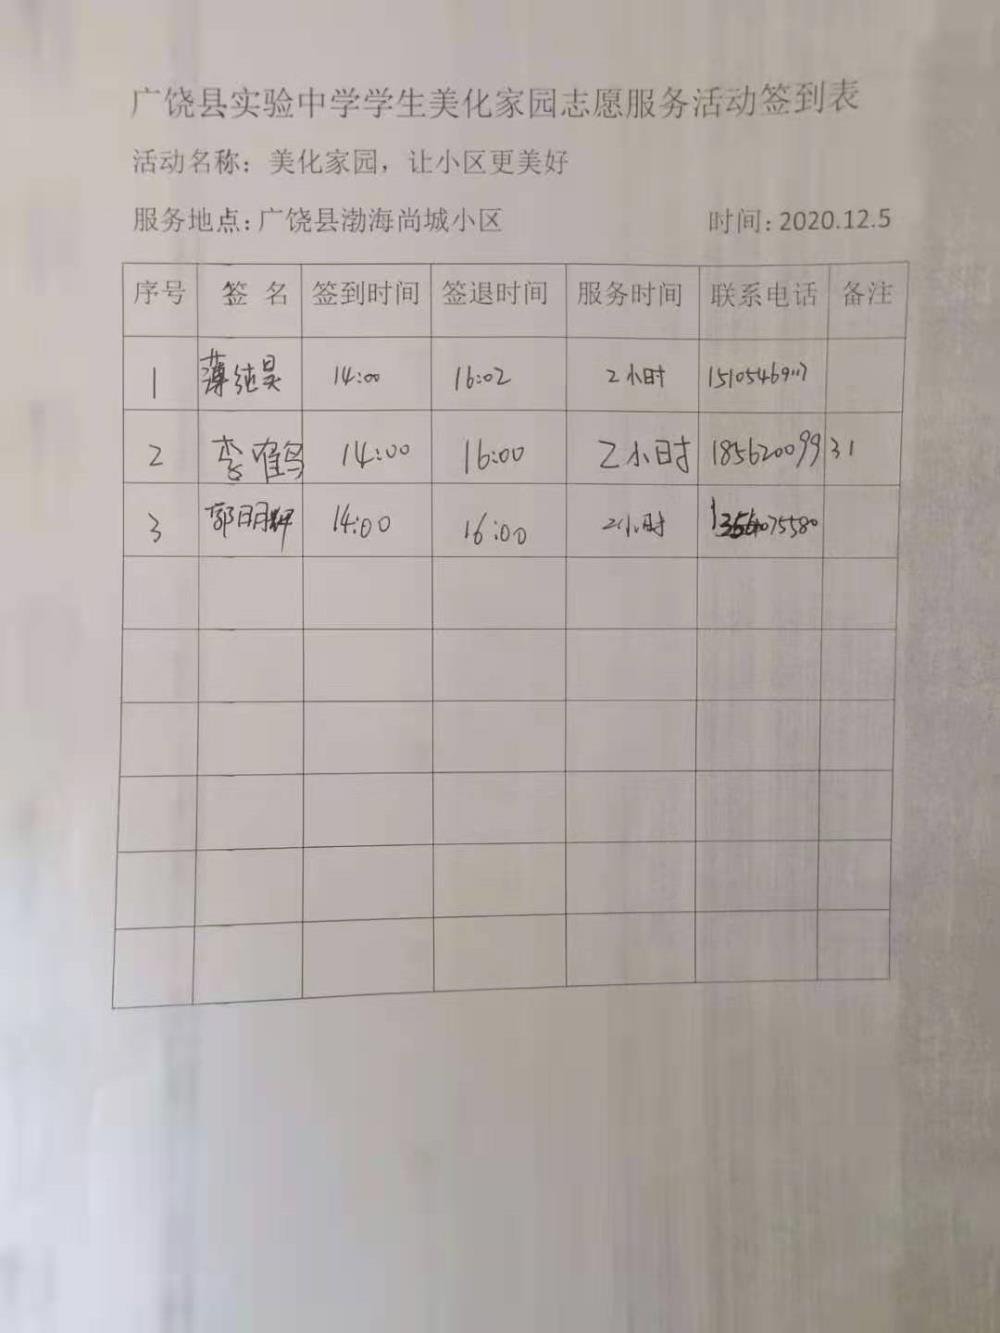 广饶县实验中学学生美化家园志愿服务活动签到表
活动名称：美化家园，让小区更美好
服务地点：广饶县渤海尚城小区 时间：2020.12.5
序号 签 名 签到时间 签退时间 服务时间 联系电话 备注
1 薄纯昊 14:00 16:02 2小时
2 李鹤 14:00 16:00 2小时 18562009931
3 郭明辉 14:00 16:00 2小时